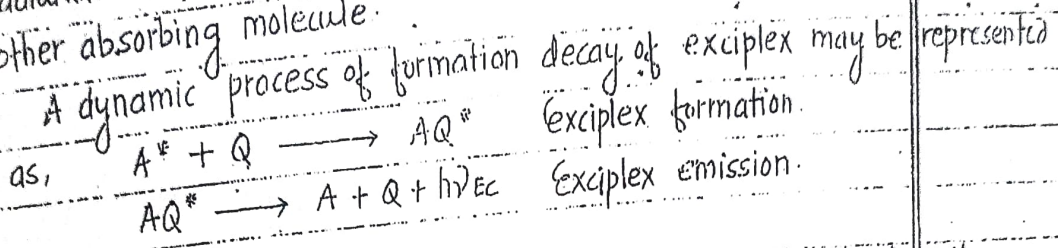 other absorbing molecule.
A dynamic process of formation decay of exciplex may be represented
as, A* + Q ⟶ AQ* Exciplex formation.
AQ* ⟶ A + Q + hνEC Exciplex emission.